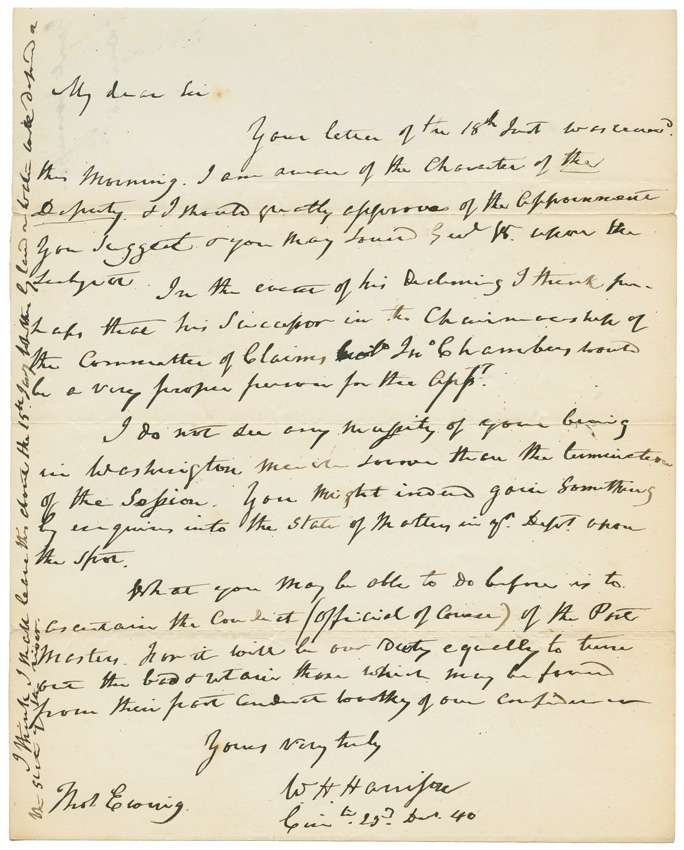 My dear Sir
Your letter of the 18th Inst was receivd.
this Morning. I am aware of the Character of the
Deputy & I should greatly approve of the Appointment
You Suggest & you may sound Genl W. upon the
Subject
In the event of his Declining I think per-
haps that his Successor in the Chairmanship of
the Committee of Claims Jno Chambers would
be a very proper person for the Appt.
I do not see any necessity of your being
in Washington sooner than the termination
of the Session. You might indeed gain Something
by enquiries into the state of Matters in yr. Dept. upon
the spot.
What you may be able to do before is to
ascertain the Conduct (official of Course) of the Post
Masters. for it will be our Duty equally to turn
out the bad & retain those which may be found
from their past Conduct worthy of our Confidence
Yours very truly
W H Harrison
Thos. Ewing.
Cin 25 Dec. 40
I think I shall leave this about the 15th Jany
the state of the river.